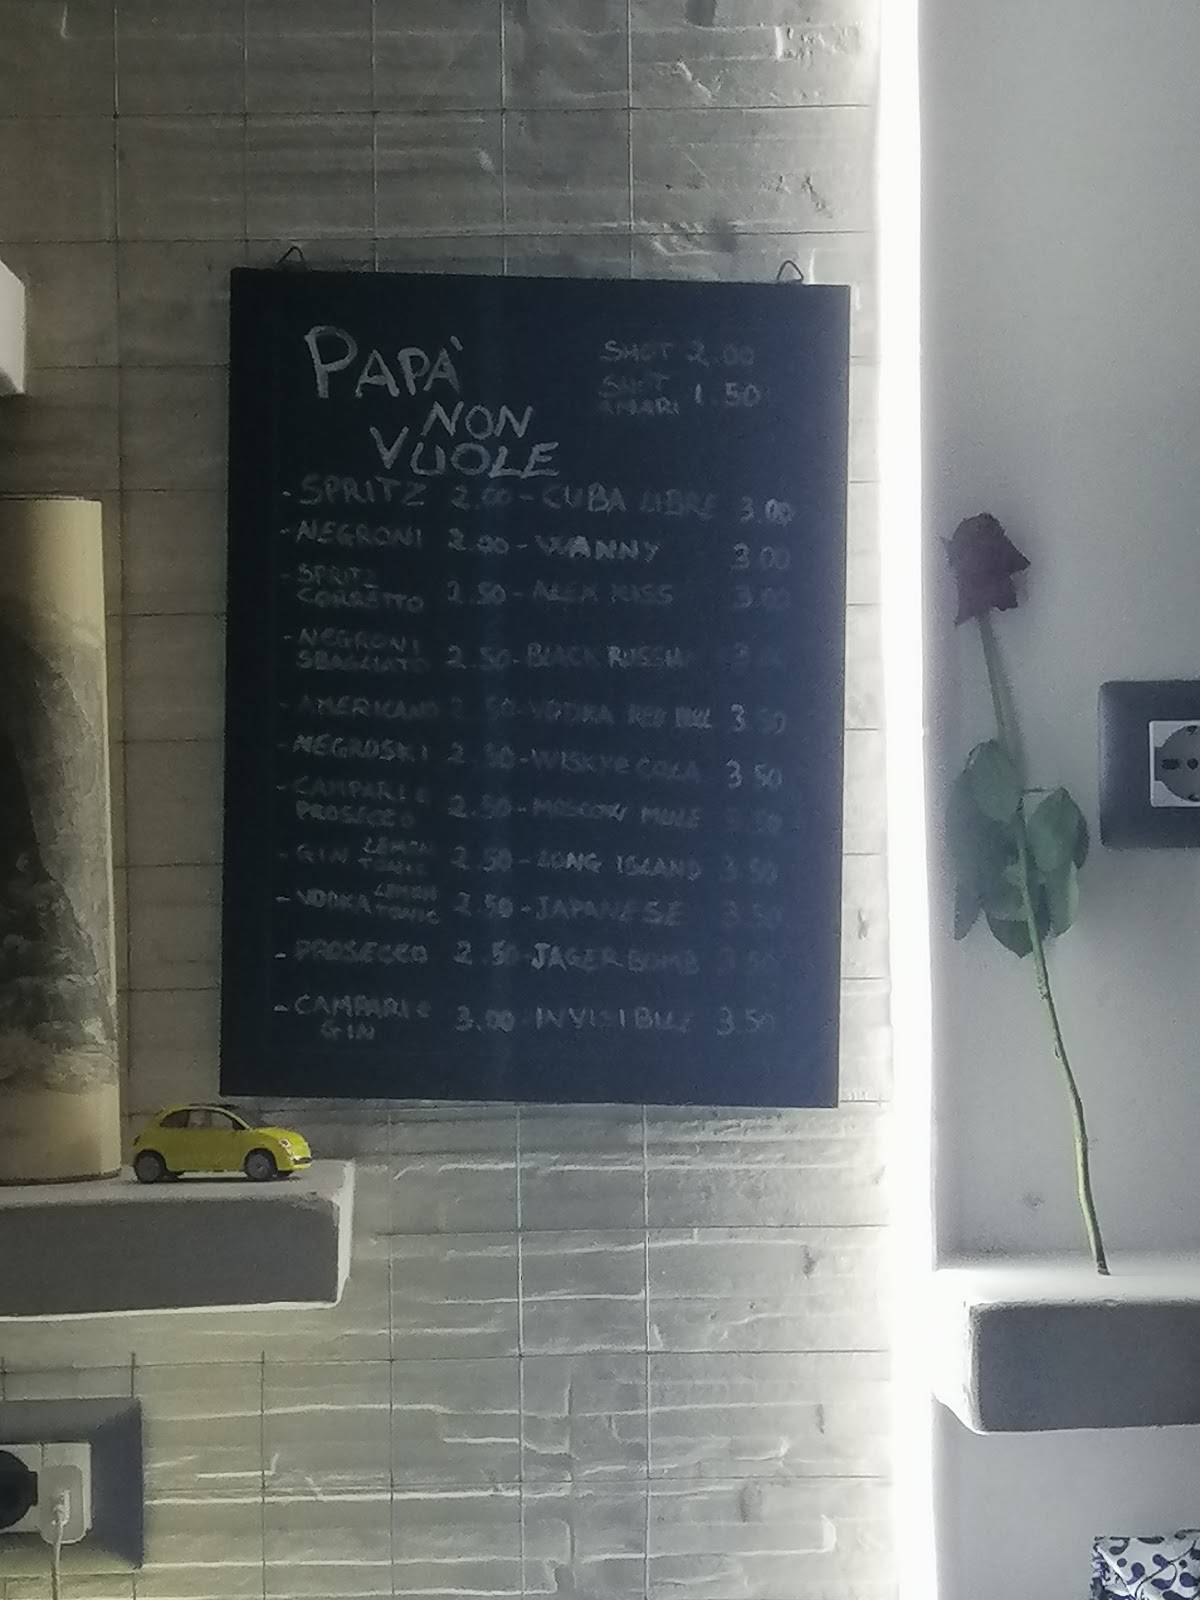 PAPÀ
NON
VUOLE
SHOT 2.00
SHOT
AMARI 1.50
- SPRITZ 2.00 - CUBA LIBRE 3.00
- NEGRONI 2.00 - WANNY 3.00
- SPRITZ
CORRETTO 2.50 - ALEX KISS 3.00
- NEGRONI
SBAGLIATO 2.50 - BLACK RUSSIAN
- AMERICANO 2.50 - VODKA RED BULL 3.50
- NEGROSKI 2.50 - WISKY e COLA 3.50
- CAMPARI e
PROSECCO 2.50 - MOSCOW MULE 3.50
- GIN LEMON
TONIC 2.50 - LONG ISLAND 3.50
- VODKA LEMON
TONIC 2.50 - JAPANESE 3.50
- PROSECCO 2.50 - JAGER BOMB 3.50
- CAMPARI e
GIN 3.00 - INVISIBILE 3.50